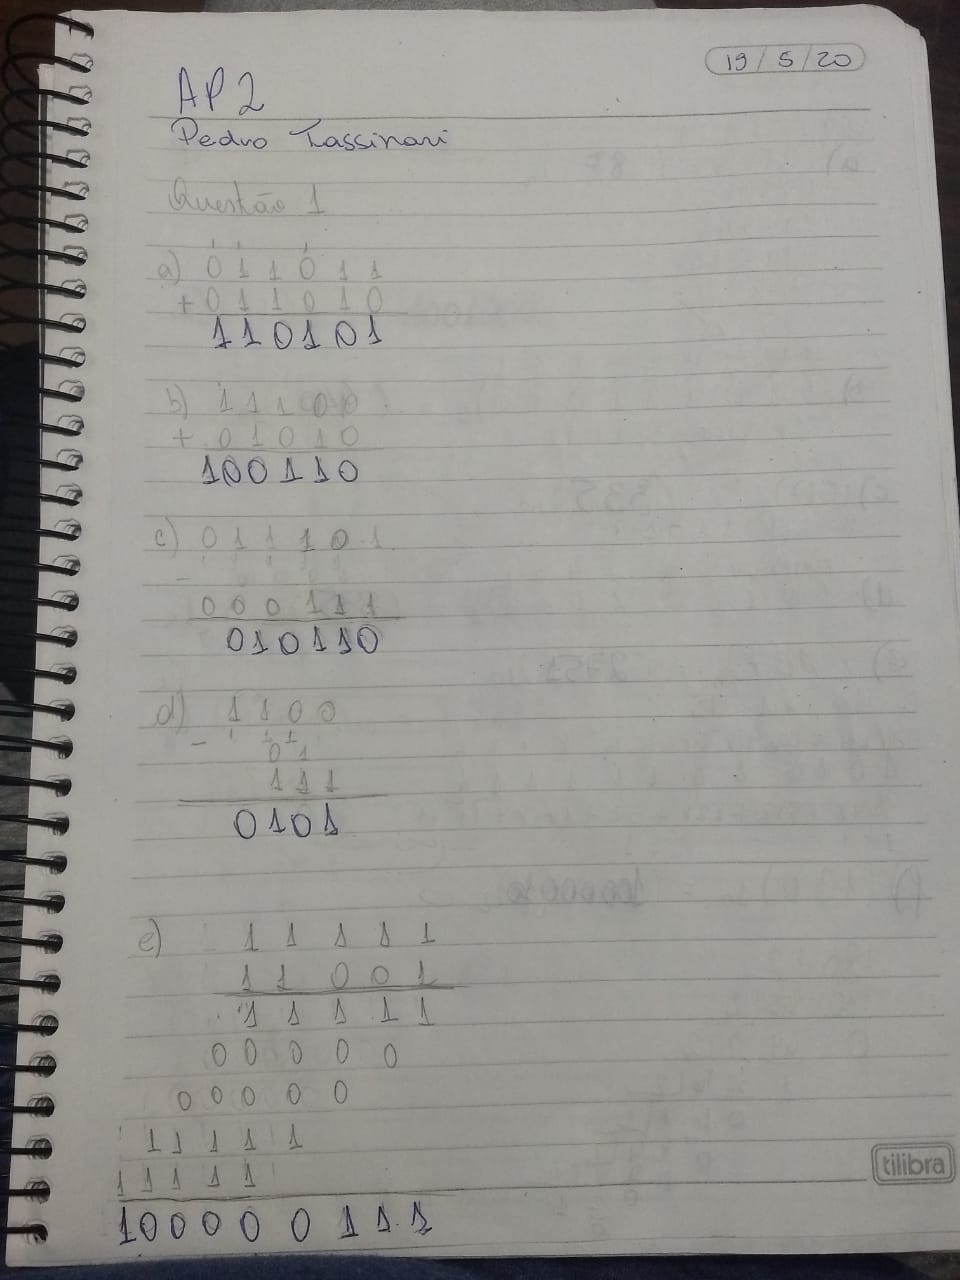 19/5/20
AP2
Pedro Tassinari
Questão 1
a) 0 1 1 0 1 1
+ 0 1 1 0 1 0
1 1 0 1 0 1
b) 1 1 1 0 0
+ 0 1 0 1 0
1 0 0 1 1 0
c) 0 1 1 1 0 1
-
0 0 0 1 1 1
0 1 0 1 1 0
d) 1 1 0 0
- 0 1
1 1 1
0 1 0 1
e) 1 1 1 1 1
1 1 0 0 1
1 1 1 1 1
0 0 0 0 0
0 0 0 0 0
1 1 1 1 1
1 1 1 1 1
tilibra
1 0 0 0 0 0 1 1 1